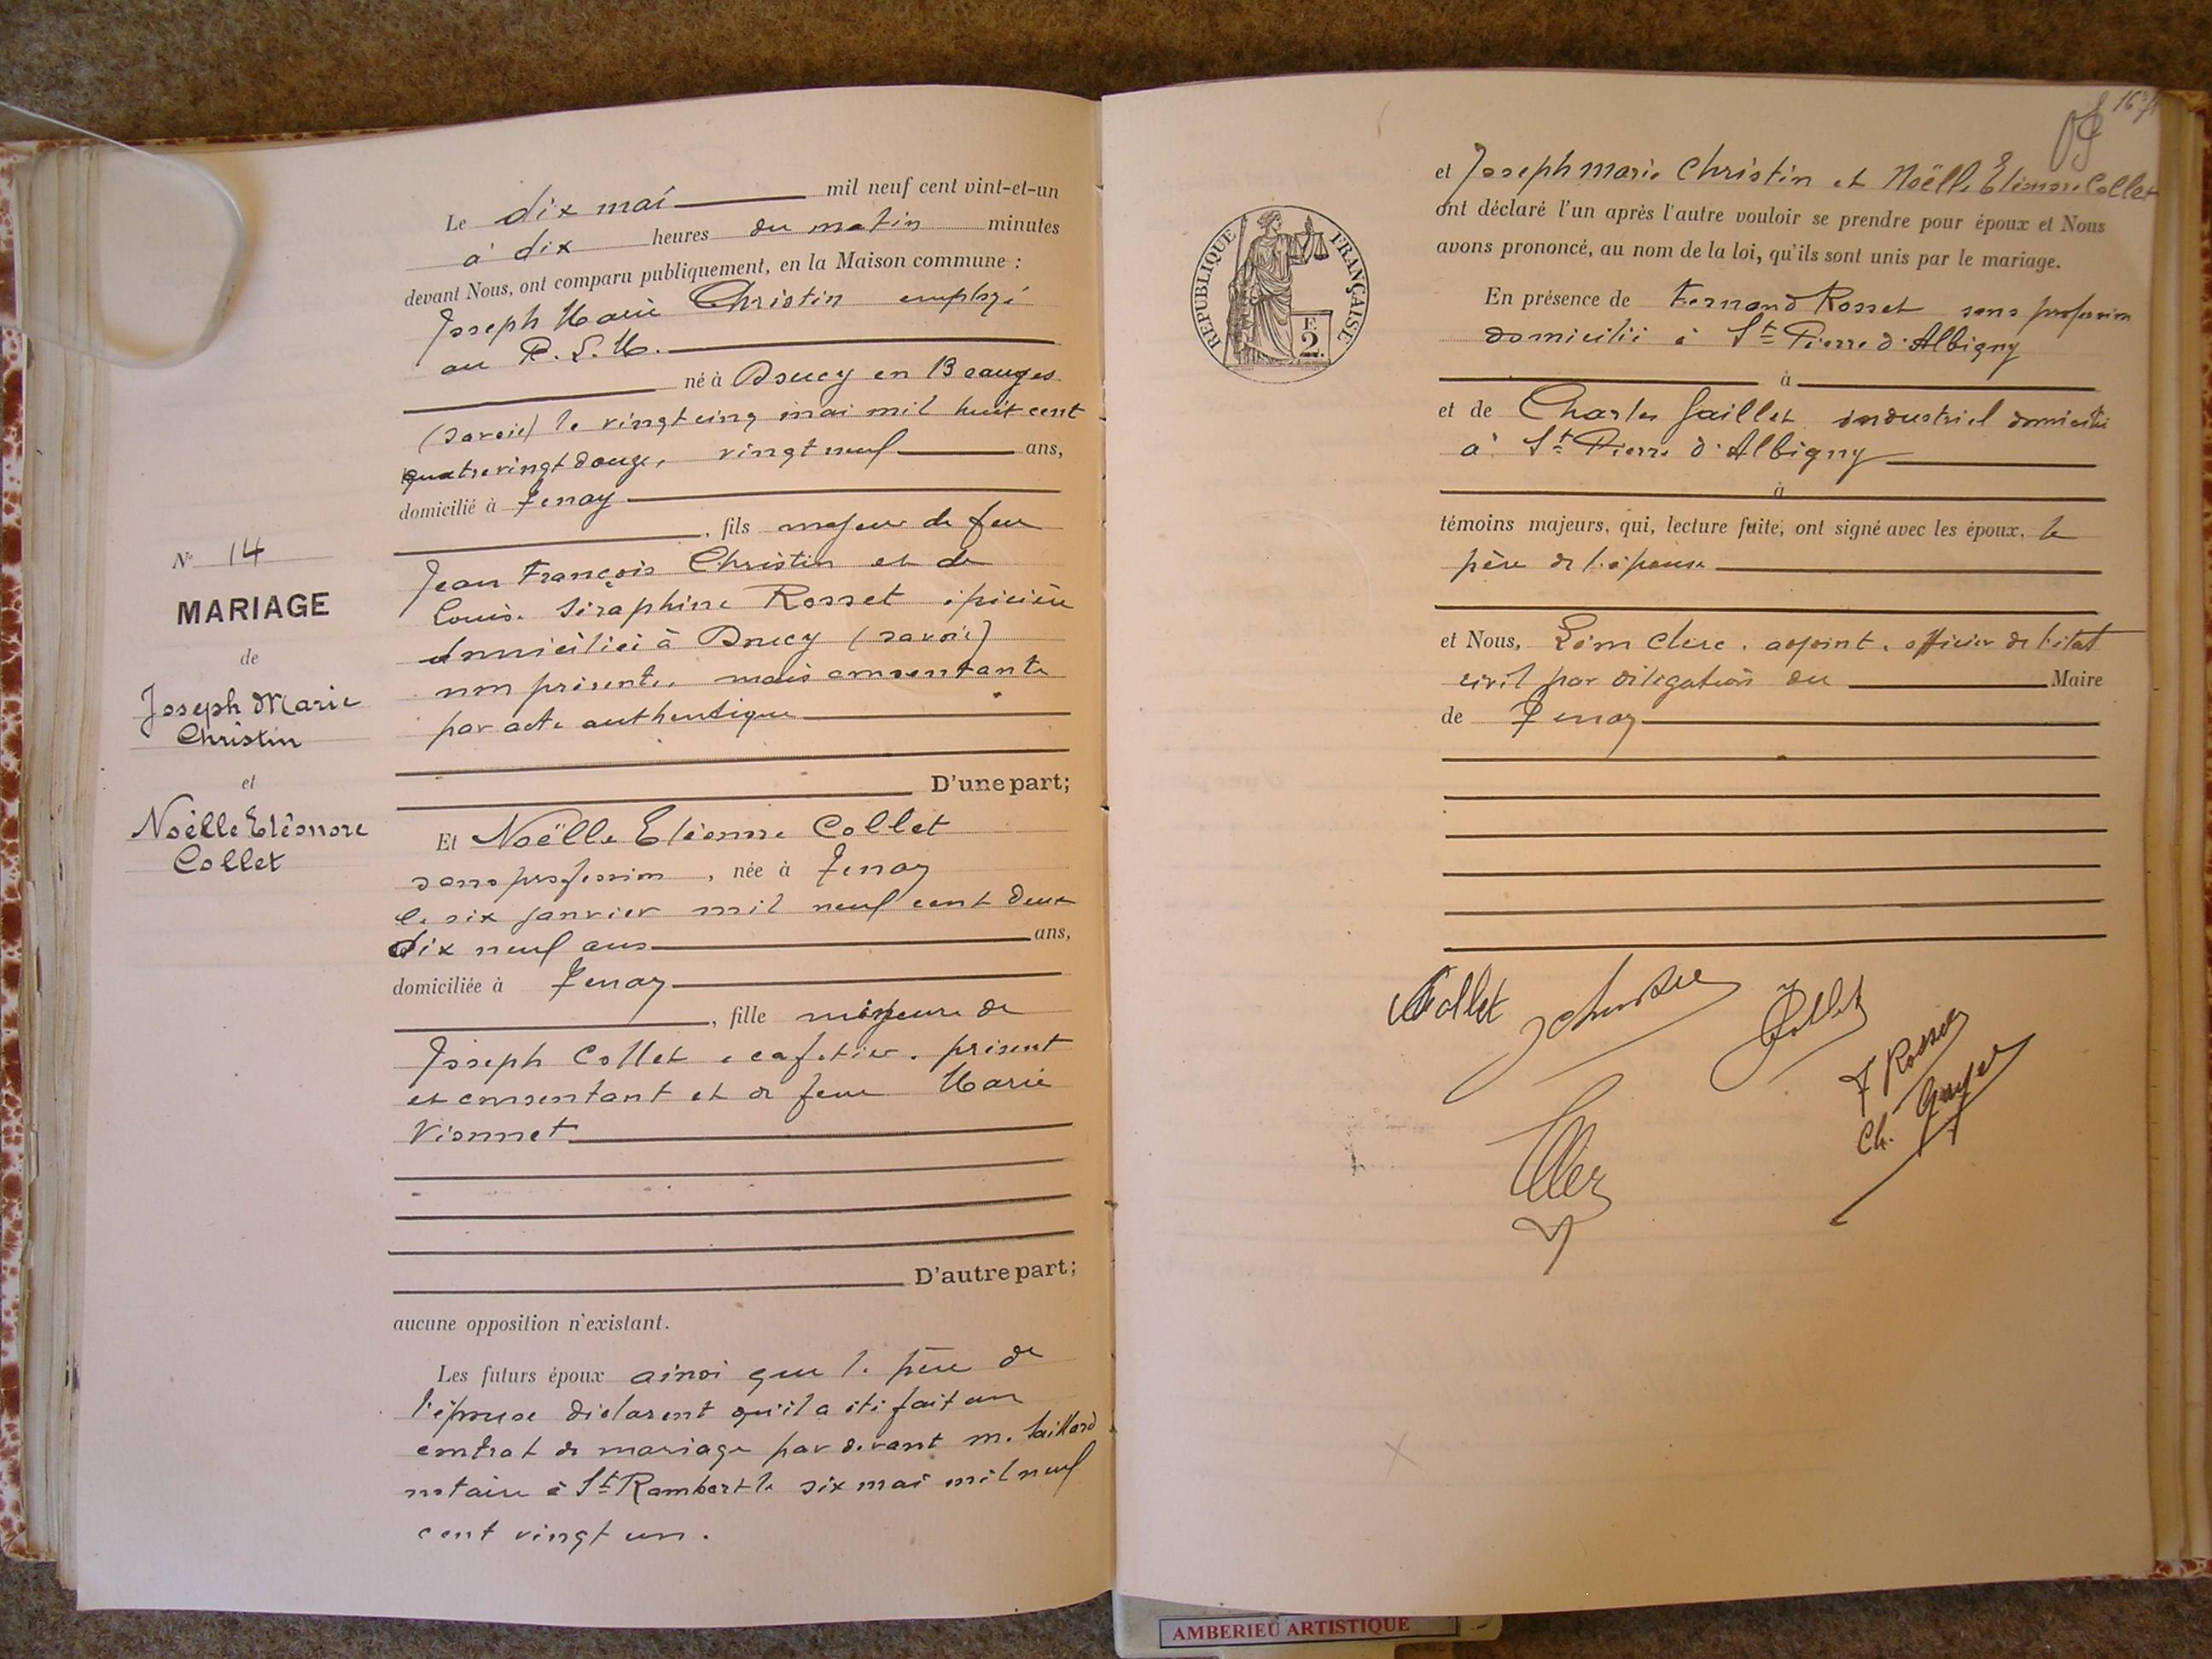 Le dix mai mil neuf cent vint-et-un
à dix heures du matin minutes
devant Nous, ont comparu publiquement, en la Maison commune :
Joseph Marie Christin employé
au P. L. M.
né à Doucy en Beauges
(Savoie) le vingt cinq mai mil huit cent
quatre vingt douze, vingt neuf ans,
domicilié à Tenay
, fils majeur de feu
Jean François Christin et de
Louise Séraphine Rosset épicière
domiciliée à Doucy (Savoie)
non présente, mais consentante
par acte authentique
D'une part;
Et Noëlle Eléonore Collet
sans profession, née à Tenay
le six janvier mil neuf cent deux
dix neuf ans ans,
domiciliée à Tenay
, fille mineure de
Joseph Collet, cafetier, présent
et consentant et de feue Marie
Vionnet
D'autre part;
aucune opposition n'existant.
Les futurs époux ainsi que le père de
l'épouse déclarent qu'il a été fait un
contrat de mariage par devant M. Saillard
notaire à St Rambert le six mai mil neuf
cent vingt un.
N° 14
MARIAGE
de
Joseph Marie
Christin
et
Noëlle Eléonore
Collet
16
et Joseph Marie Christin et Noëlle Eléonore Collet
ont déclaré l'un après l'autre vouloir se prendre pour époux et Nous
avons prononcé, au nom de la loi, qu'ils sont unis par le mariage.
RÉPUBLIQUE FRANÇAISE
E
2
En présence de Fernand Rosset sans profession
domicilié à St Pierre d'Albigny
à
et de Charles Gaillet industriel domicilié
à St Pierre d'Albigny
à
témoins majeurs, qui, lecture faite, ont signé avec les époux, le
père de l'épouse
et Nous, Léon Clerc, adjoint, officier de l'état
civil par délégation du Maire
de Tenay
Collet
J Christin
Collet
F Rosset
Ch.
AMBERIEU ARTISTIQUE